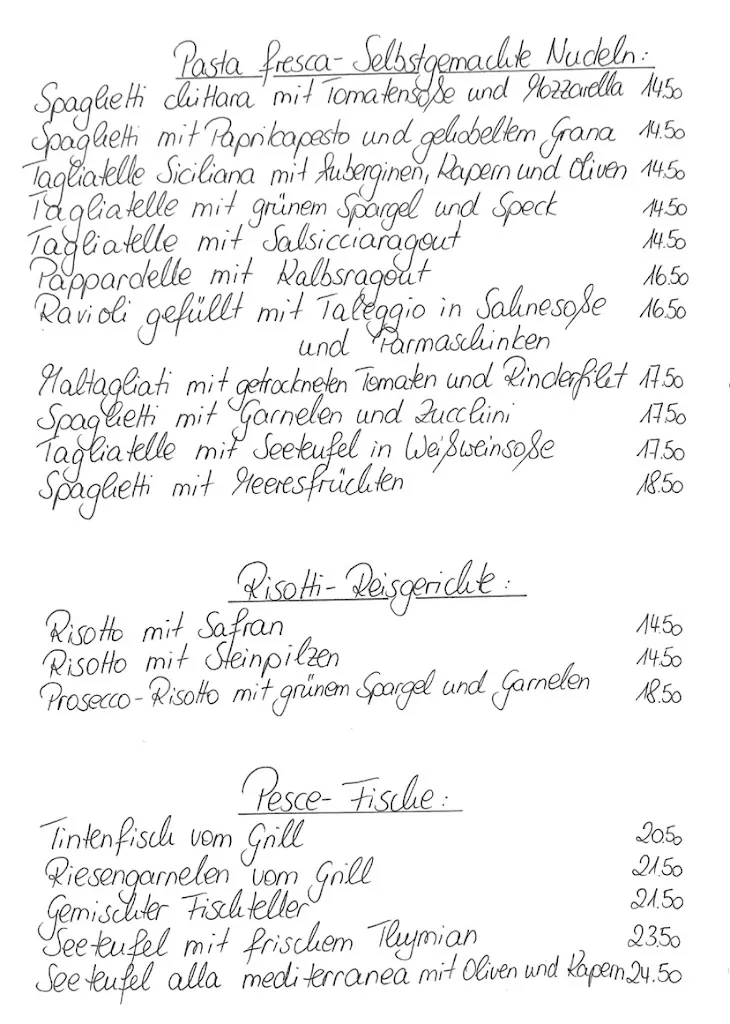 Pasta fresca - Selbstgemachte Nudeln:
Spaghetti chittara mit Tomatensoße und Mozzarella 14.50
Spaghetti mit Paprikapesto und gehobeltem Grana 14.50
Tagliatelle Siciliana mit Auberginen, Kapern und Oliven 14.50
Tagliatelle mit grünem Spargel und Speck 14.50
Tagliatelle mit Salsicciaragout 14.50
Pappardelle mit Kalbsragout 16.50
Ravioli gefüllt mit Taleggio in Sahnesoße 16.50
und Parmaschinken
Maltagliati mit getrockneten Tomaten und Rinderfilet 17.50
Spaghetti mit Garnelen und Zucchini 17.50
Tagliatelle mit Seeteufel in Weißweinsoße 17.50
Spaghetti mit Meeresfrüchten 18.50
Risotti - Reisgerichte:
Risotto mit Safran 14.50
Risotto mit Steinpilzen 14.50
Prosecco - Risotto mit grünem Spargel und Garnelen 18.50
Pesce - Fische:
Tintenfisch vom Grill 20.50
Riesengarnelen vom Grill 21.50
Gemischter Fischteller 21.50
Seeteufel mit frischem Thymian 23.50
Seeteufel alla mediterranea mit Oliven und Kapern 24.50